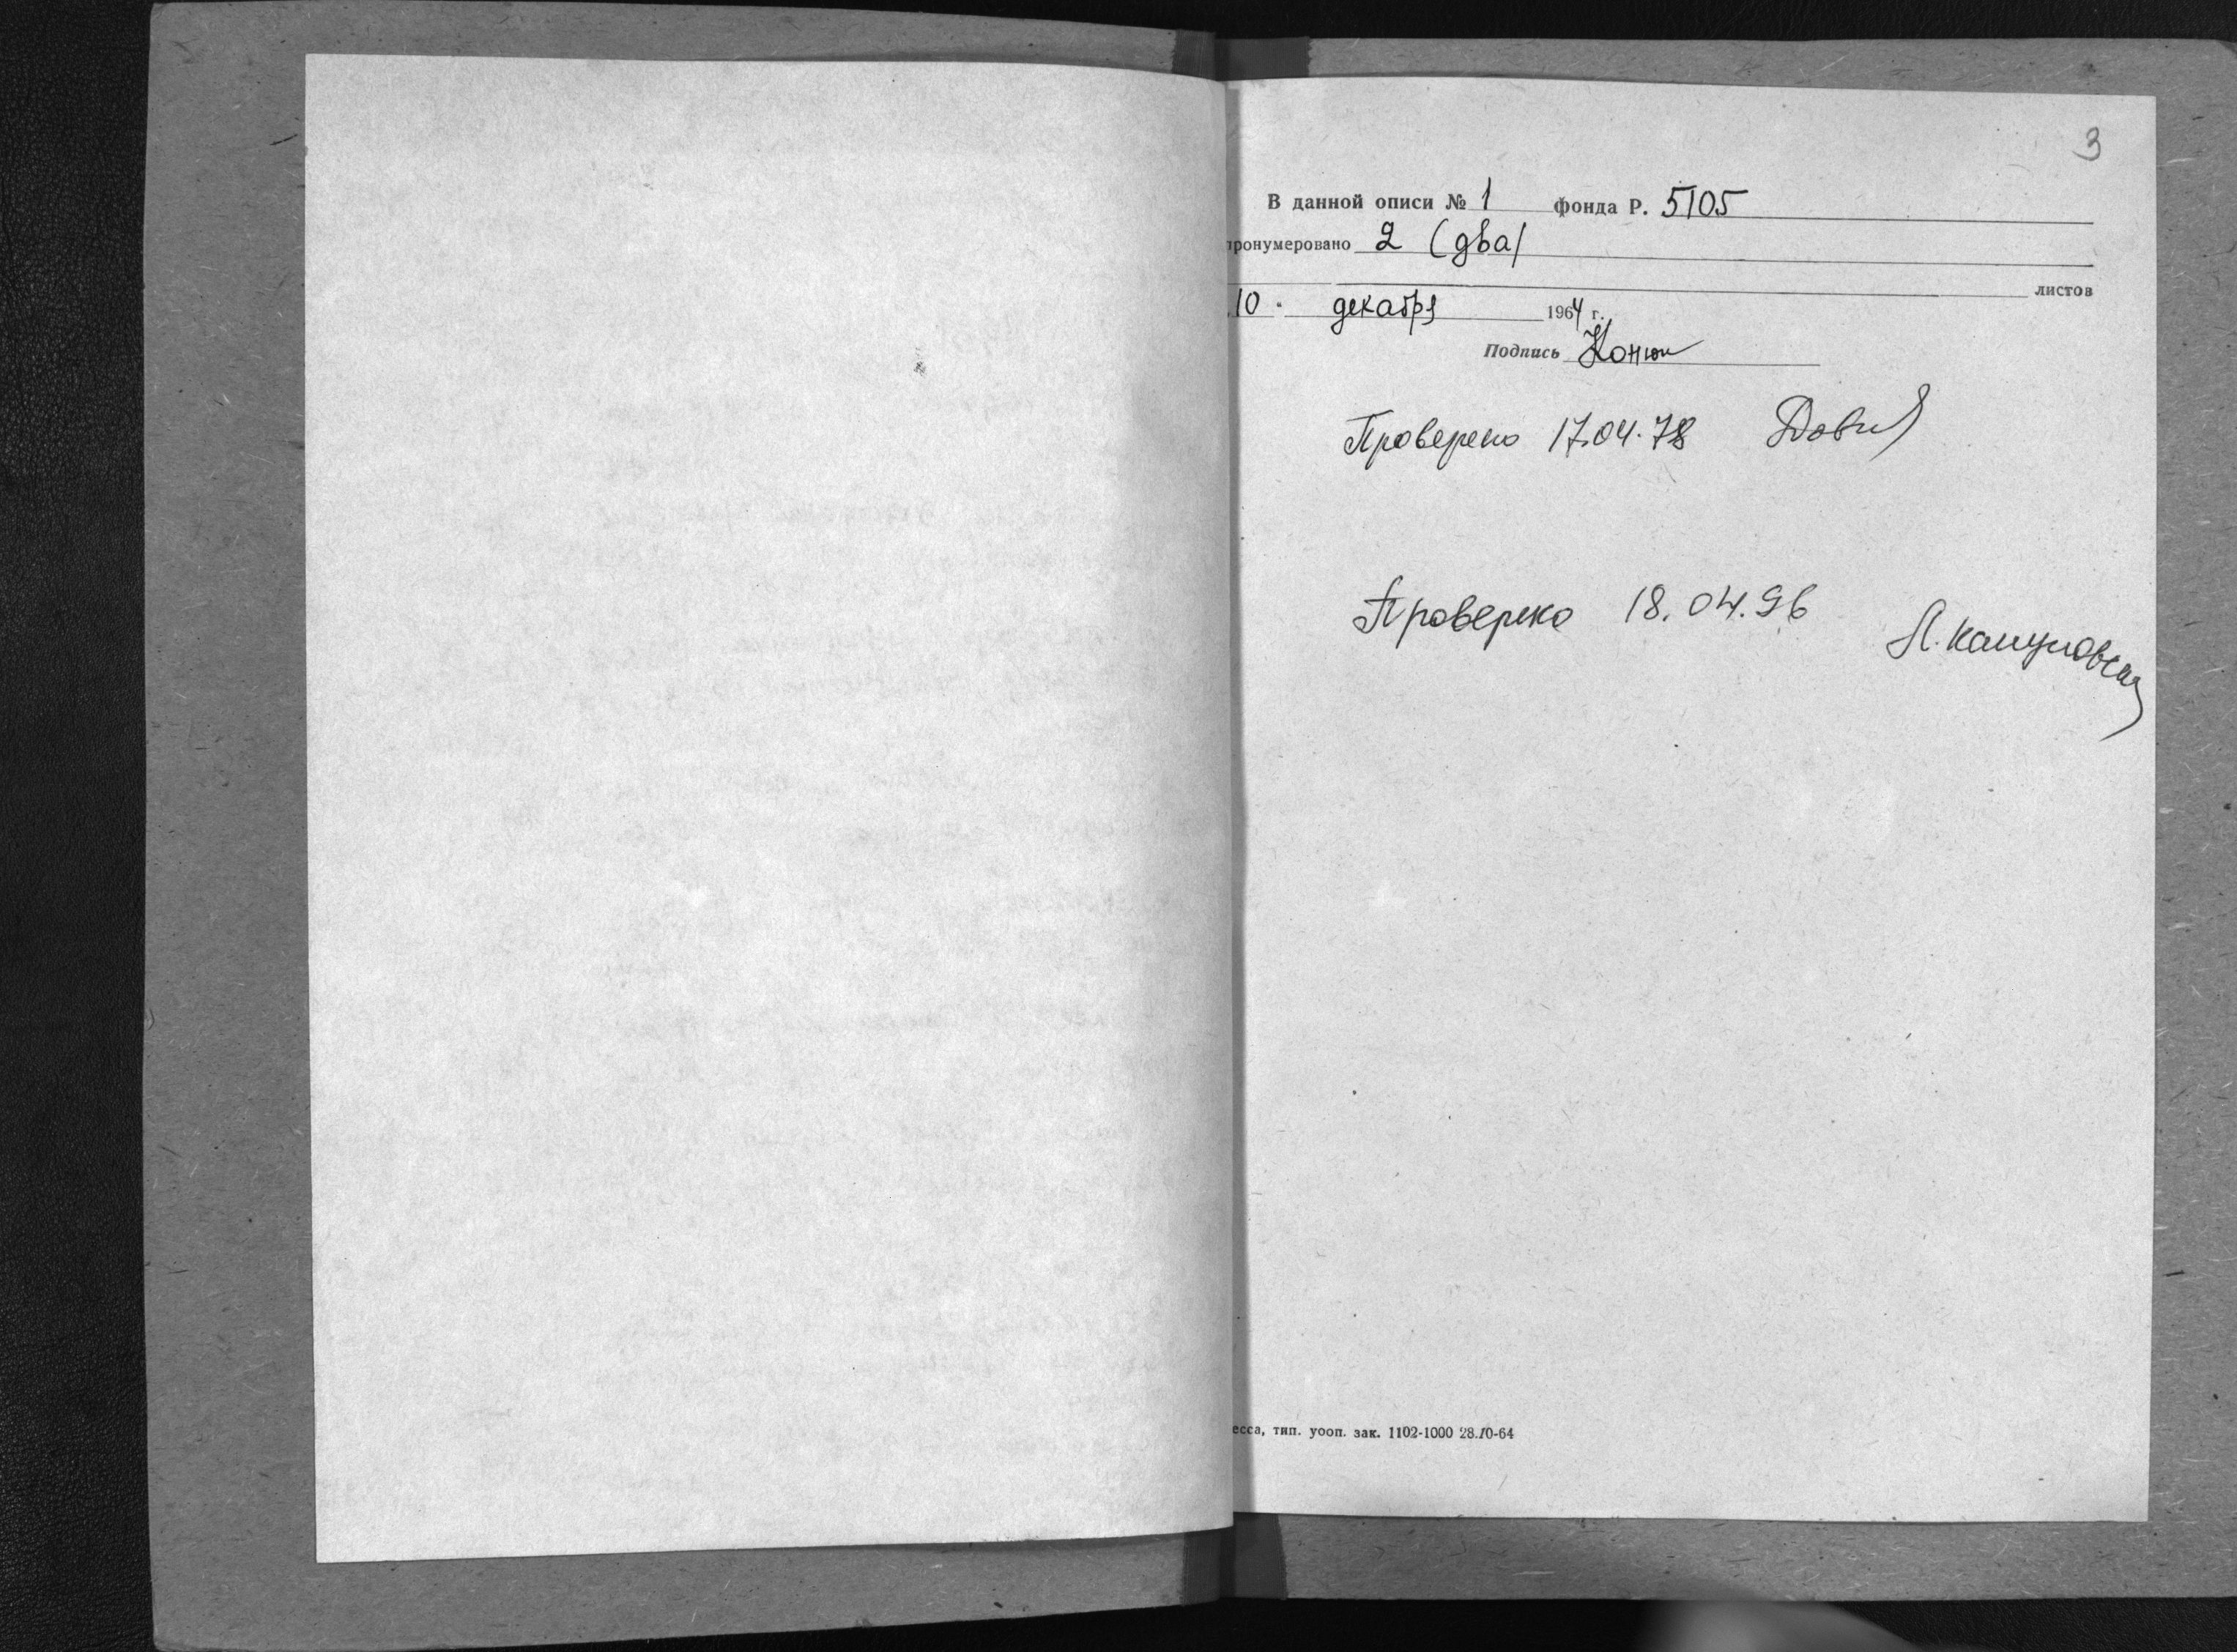 3
В данной описи № 1 фонда Р. 5105
пронумеровано 2 (два)
листов
10 декабря 1964 г.
Подпись
Проверено 17.04.78
Проверено 18.04.96
есса, тип. уооп. зак. 1102-1000 28.10-64